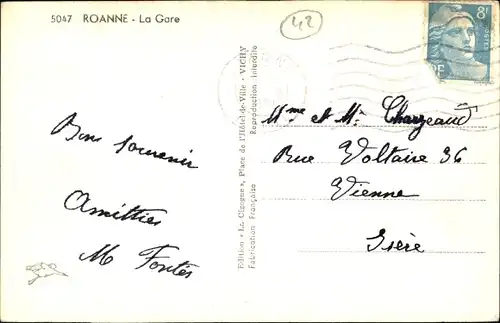 5047 ROANNE - La Gare
42
8F
RF
Bons souvenir
Amitties
M Fontès
Edition « La Cigogne », Place de l'Hôtel-de-Ville - VICHY
Fabrication Française Reproduction Interdite
Mme et Mr Chazeaud
Rue Voltaire 36
Vienne
Isère